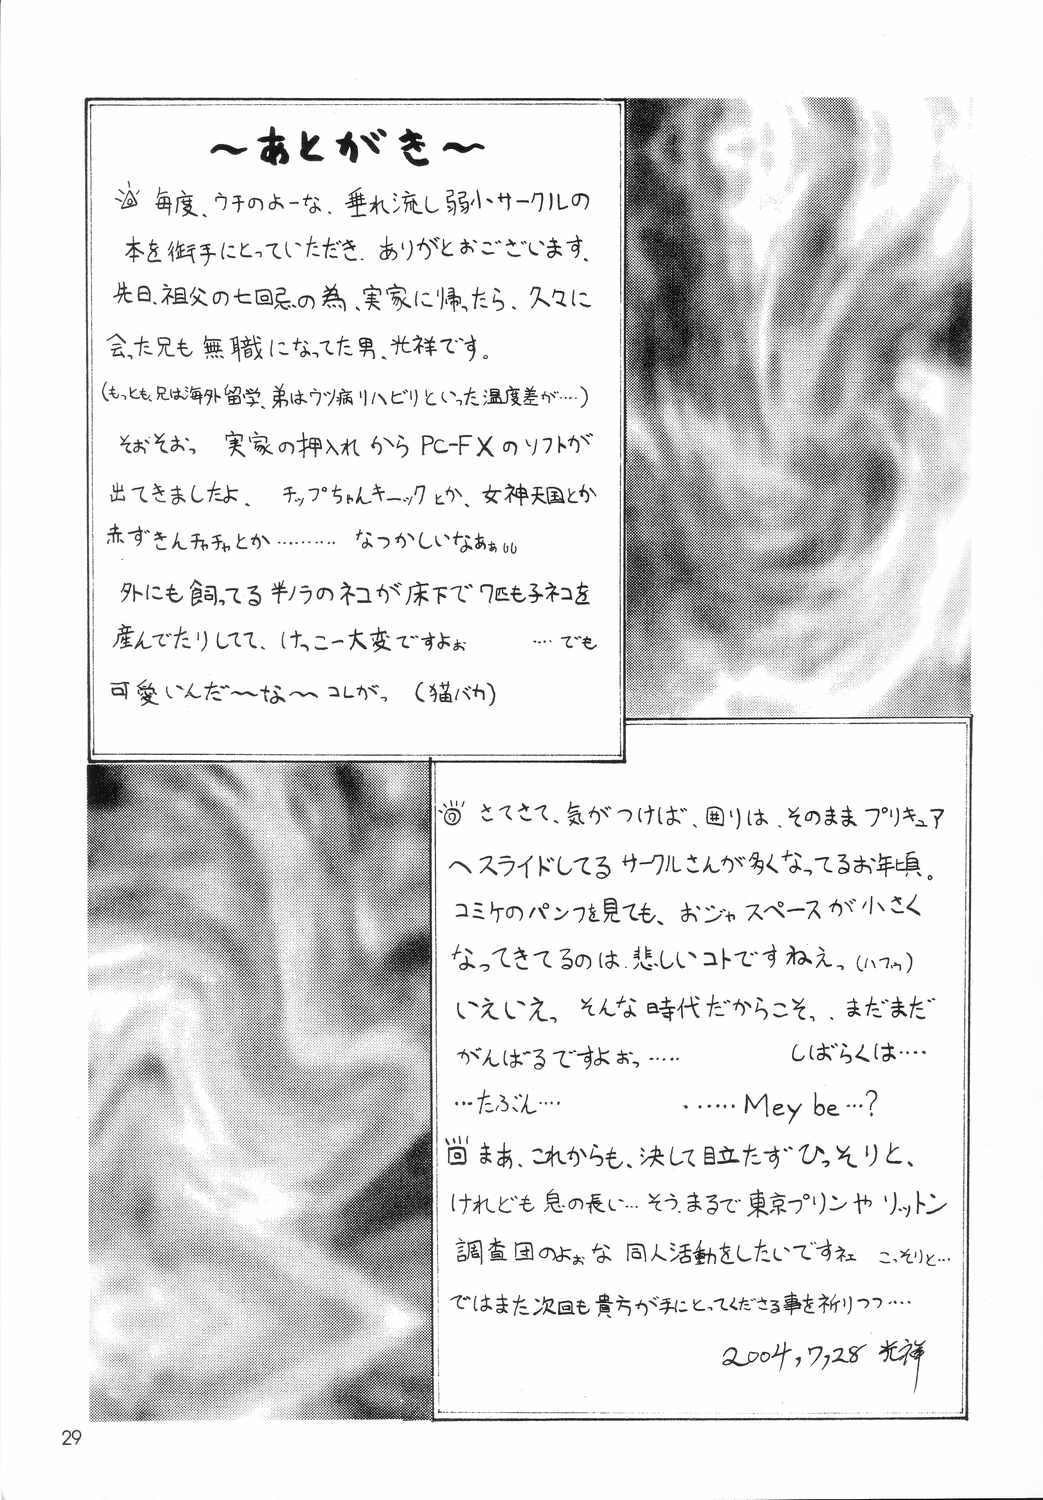 ～あとがき～
毎度、ウチのよーな、垂れ流し弱小サークルの
本を御手にとっていただき、ありがとおございます、
先日、祖父の七回忌の為、実家に帰ったら、久々に
会った兄も無職になってた男、光祥です。
(もっとも、兄は海外留学、弟はウツ病リハビリといった温度差が‥‥)
そおそおっ 実家の押入れからPC-FXのソフトが
出てきましたよ、 チップちゃんキーックとか、女神天国とか
赤ずきんチャチャとか………… なつかしいなあぁ
外にも飼ってる半ノラのネコが床下で7匹も子ネコを
産んでたりしてて、けっこー大変ですよぉ ‥‥でも
可愛いんだ〜な〜コレがっ (猫バカ)
さてさて、気がつけば、囲りは、そのままプリキュア
へスライドしてるサークルさんが多くなってるお年頃。
コミケのパンフを見ても、おジャスペースが小さく
なってきてるのは、悲しいコトですねえっ(ハフゥ)
いえいえっ そんな時代だからこそっ、まだまだ
がんばるですよぉっ‥‥‥ しばらくは‥‥
…たぶん‥‥ ・‥‥‥Mey be…?
まあ、これからも、決して目立たずひっそりと、
けれども息の長い…そう、まるで東京プリンやリットン
調査団のよぉな 同人活動をしたいですネェ こっそりと…
ではまた次回も貴方が手にとってくださる事を祈りつつ‥‥
2004,7,28 光祥
29